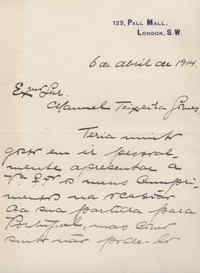 129, PALL MALL,
LONDON, S.W.
6 de abril de 1914
Exmo Snr.
Manuel Teixeira Gomes
Teria muito
gosto em ir pessoal-
mente apresentar a
V. Exª os meus cumpri-
mentos na ocasião
da sua partida para
Portugal, mas como
sinto não poder-lo